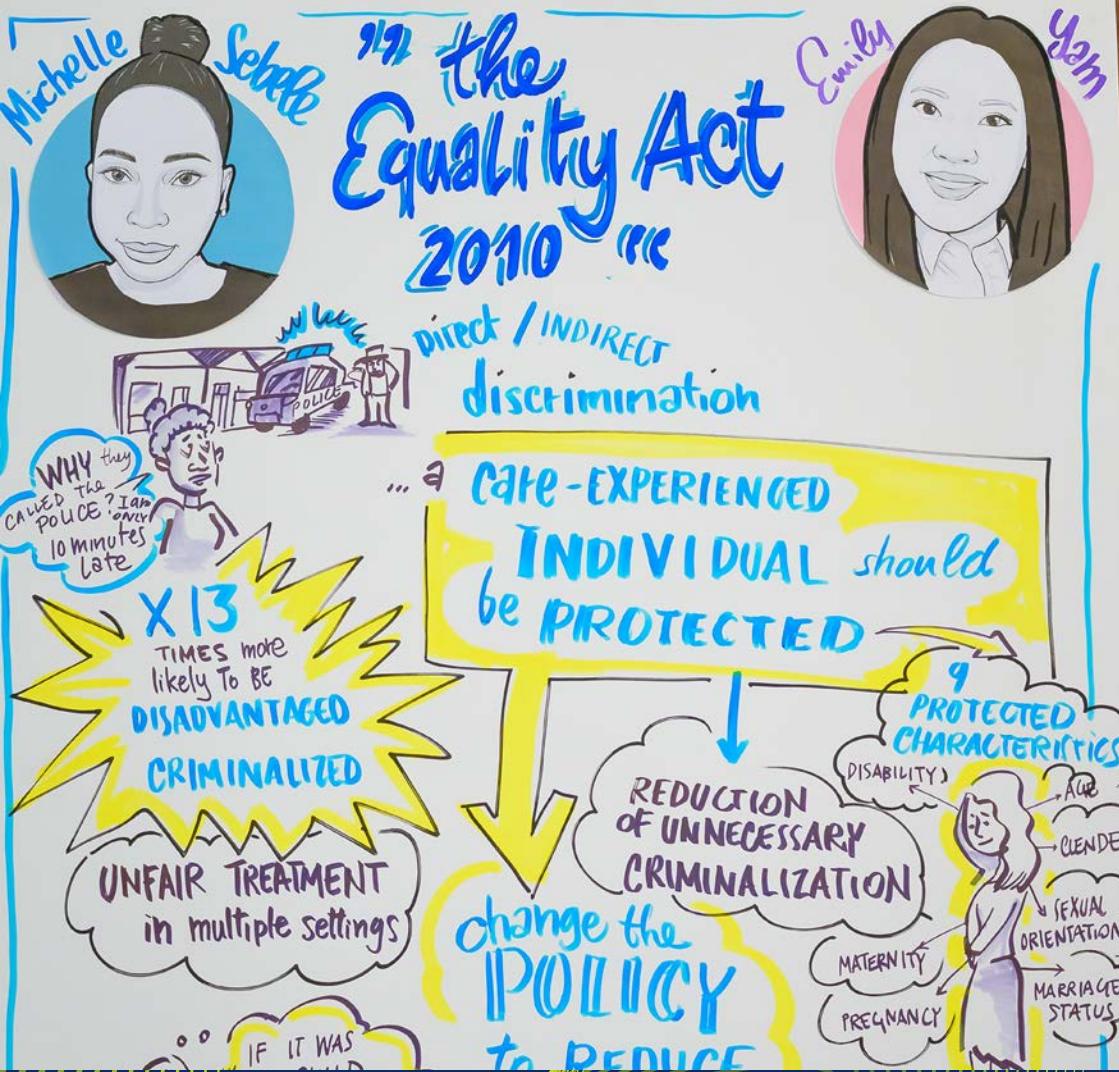 Michelle Sebele
"the
Equality Act
2010"
Emily Yam
Direct / INDIRECT
discrimination
POLICE
WHY they
CALLED the
POLICE? I am
ONLY
10 minutes
late
... a
care-EXPERIENCED
INDIVIDUAL should
be PROTECTED
X 13
TIMES more
likely TO BE
DISADVANTAGED
CRIMINALIZED
UNFAIR TREATMENT
in multiple settings
REDUCTION
OF UNNECESSARY
CRIMINALIZATION
9
PROTECTED
CHARACTERISTICS
DISABILITY
AGE
GENDE
SEXUAL
ORIENTATION
MARRIAGE
STATUS
MATERNITY
PREGNANCY
change the
POLICY
to REDUCE
IF IT WAS